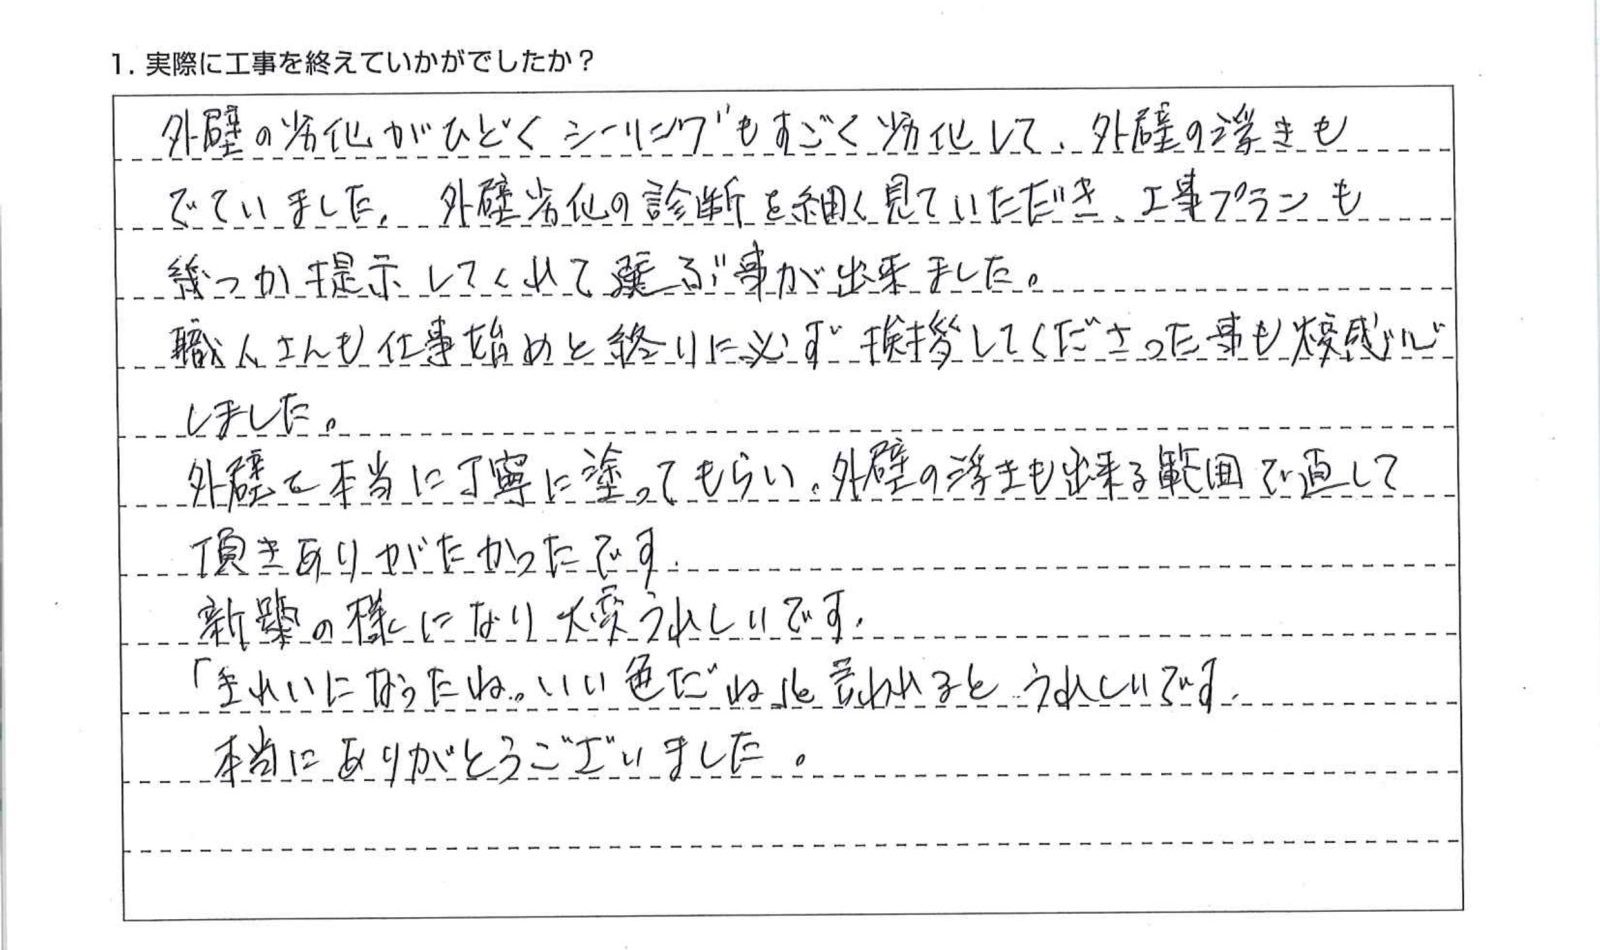 1. 実際に工事を終えていかがでしたか？
外壁の劣化がひどくシーリングもすごく劣化して、外壁の浮きも
でていました。外壁劣化の診断を細く見ていただき、工事プランも
幾つか提示してくれて選ぶ事が出来ました。
職人さんも仕事始めと終りに必ず挨拶してくださった事も大変感心
しました。
外壁を本当に丁寧に塗ってもらい、外壁の浮きも出来る範囲で直して
頂きありがたかったです。
新築の様になり大変うれしいです。
「きれいになったね。いい色だね」と言われるとうれしいです。
本当にありがとうございました。